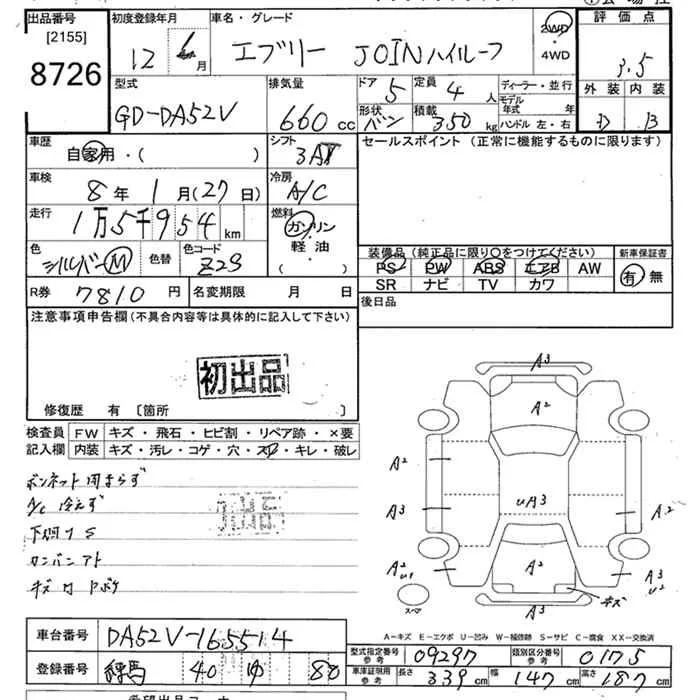 出品番号
[2155]
8726
初度登録年月
12 6月
車名・グレード
エブリー JOINハイルーフ
2WD
・
4WD
評価点
3.5
外装 内装
D B
型式
GD-DA52V
排気量
660 cc
ドア
5
定員
4 人
形状
バン
積載
350 kg
ディーラー・並行
モデル年式 年
ハンドル 左・右
車歴
自家用・( )
シフト
3AT
車検
8年 1月(27日)
冷房
A/C
走行
1万5千954 km
燃料
ガソリン
・
軽油
・
( )
色
シルバーM
色替
色コード
Z2S
R券
7810 円
名変期限 月 日
セールスポイント (正常に機能するものに限ります)
装備品 (純正品に限り○をつけてください)
PS PW ABS エアB AW
SR ナビ TV カワ
新車保証書
有 無
後日品
注意事項申告欄 (不具合内容等は具体的に記入して下さい)
初出品
修復歴 有 [箇所 ]
検査員
記入欄
FW キズ・飛石・ヒビ割・リペア跡・×要
内装 キズ・汚レ・コゲ・穴・スレ・キレ・破レ
ボンネット閉まらず
A/C 冷えず
下廻りS
カンバンアト
キズ
A3
A2
A2
A3
uA3
A2
A2
u1
A2
A3
u2
キズ
スペア
A3
A-キズ E-エクボ U-凹み W-補修跡 S-サビ C-腐食 XX-交換済
車台番号
DA52V-165514
登録番号
練馬 40 ゆ 80
型式指定番号
参考
09297
類別区分番号
参考
0175
車庫証明用
参考
長さ 339 cm
幅 147 cm
高さ 187 cm